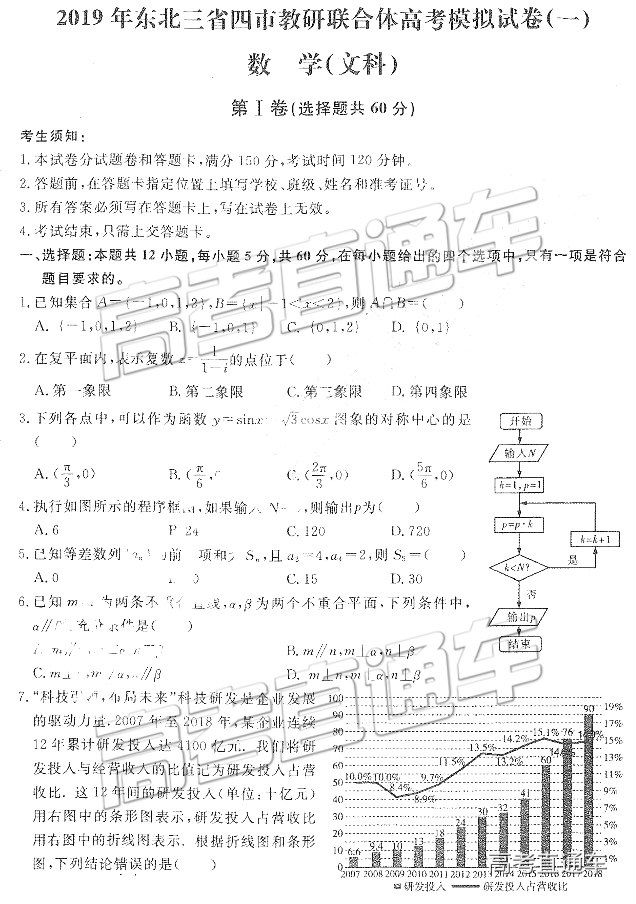 2019 年东北三省四市教研联合体高考模拟试卷(一)
数 学(文科)
第 Ⅰ 卷(选择题共 60 分)
考生须知:
1. 本试卷分试题卷和答题卡,满分 150 分,考试时间 120 分钟。
2. 答题前,在答题卡指定位置上填写学校、班级、姓名和准考证号。
3. 所有答案必须写在答题卡上,写在试卷上无效。
4. 考试结束,只需上交答题卡。
一、选择题:本题共 12 小题,每小题 5 分,共 60 分,在每小题给出的四个选项中,只有一项是符合
题目要求的。
1. 已知集合 A={-1,0,1,2},B={x|-1<x<2},则 A∩B=( )
A. {-1,0,1,2} B. {-1,0,1} C. {0,1,2} D. {0,1}
2. 在复平面内,表示复数 z=1/(1-i)的点位于( )
A. 第一象限 B. 第二象限 C. 第三象限 D. 第四象限
3. 下列各点中,可以作为函数 y=sinx √3cosx 图象的对称中心的是
( )
A. (π/3,0) B. (π/6, C. (2π/3,0) D. (5π/6,0)
4. 执行如图所示的程序框 ,如果输入 N= ,则输出p为( )
A. 6 24 C. 120 D. 720
5. 已知等差数列 前 项和 Sn,且 a2=4,a4=2,则 S5=( )
A. 0 C. 15 D. 30
6. 已知 m 为两条不 直线,α,β 为两个不重合平面,下列条件中,
α∥ 充 条件是( )
B. m∥n,m⊥α,n⊥β
C. m⊥ ∥β D. m⊥n,m⊥α,n⊥β
开始
输入N
k=1,p=1
p=p·k
k=k+1
k<N?
是
否
输出p
结束
7. “科技 ,布局未来”科技研发是企业发展
的驱动力量. 2007 年至 2018 年,某企业连续
12 年累计研发投入达 4100 亿元. 我们将研
发投入与经营收入的比值记为研发投入占营
收比. 这 12 年间的研发投入(单位:十亿元)
用右图中的条形图表示,研发投入占营收比
用右图中的折线图表示. 根据折线图和条形
图,下列结论错误的是( )
100
90
80
70
60
50
40
30
20
10
0
19%
17%
15%
13%
11%
9%
7%
5%
3%
1%
-1%
10.0% 10.0% 8.4% 8.9% 9.7% 11.5% 13.5% 13.2% 14.2% 15.1%
6.6 9.4 10 13 18 24 30 32 41 60 76 90
2007 2008 2009 2010 2011 2012 2013 2014 2015 2016 2017 2018
研发投入 研发投入占营收比
高考直通车
高考直通车
高考直通车